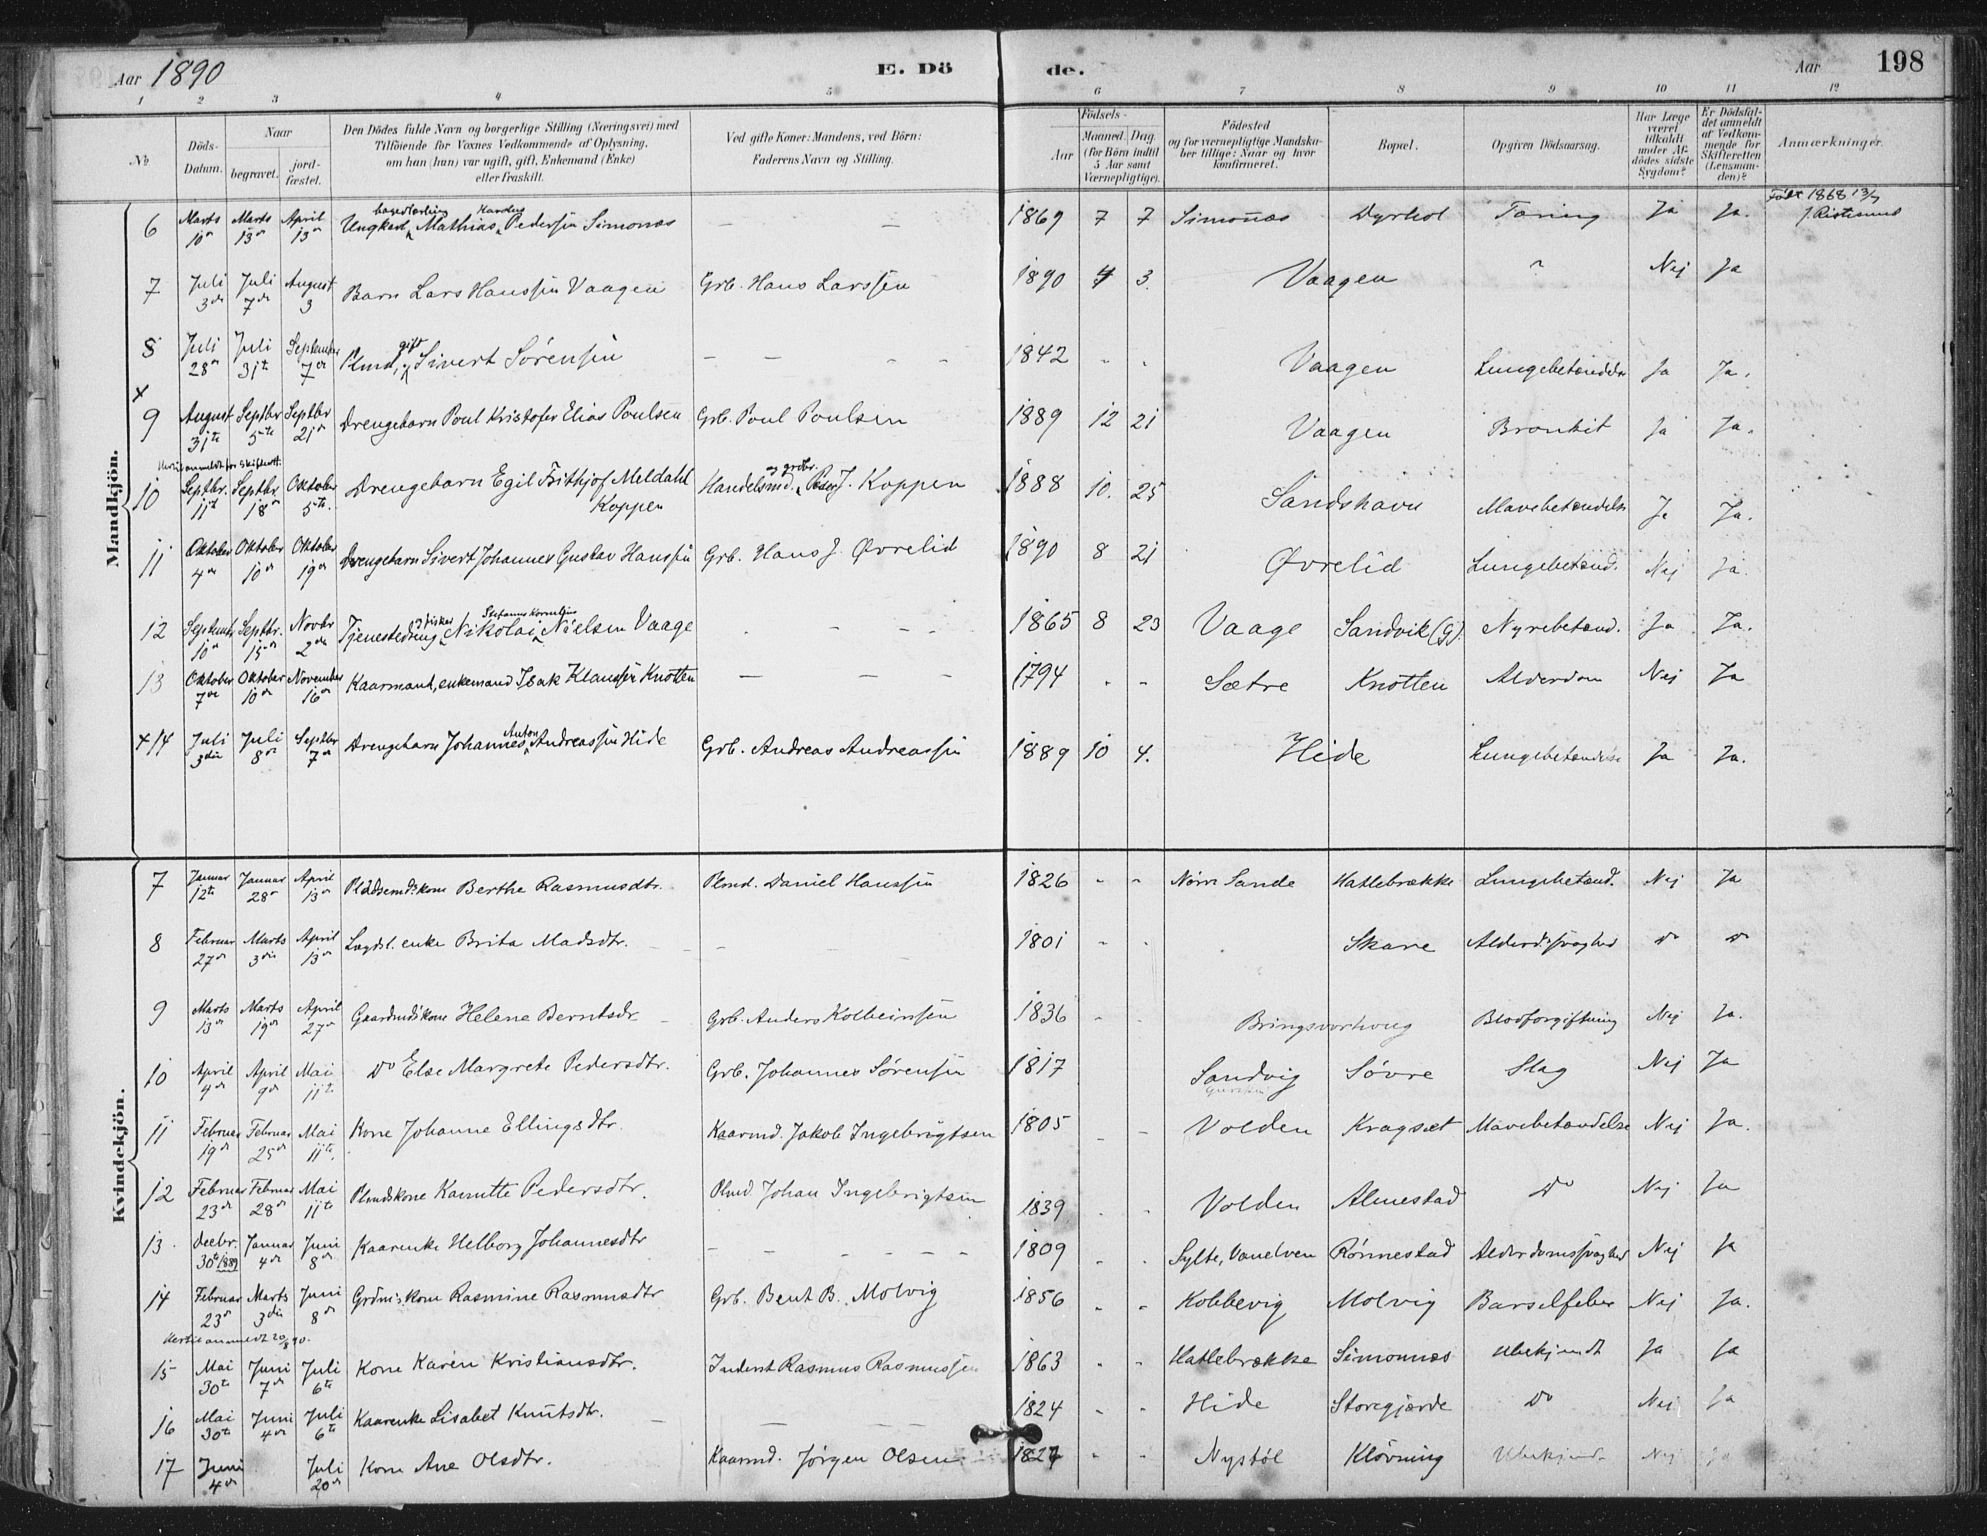 Aar 1890 E. Dö de. Aar 198
1 2 3 4 5 6 7 8 9 10 11 12
No Döds-Datum. Naar begravet. jord-fæstet. Den Dödes fulde Navn og borgerlige Stilling (Næringsvei) med Tilföiende for Voxnes Vedkommende af Oplysning, om han (hun) var ugift, gift, Enkemand (Enke) eller fraskilt. Ved gifte Koner: Mandens, ved Börn: Faderens Navn og Stilling. Födsels- Aar Maaned. Dag. (for Börn indtil 5 Aar samt Værnepligtige). Födested og for værnepligtige Mandskaber tillige: Naar og hvor konfirmeret. Bopæl. Opgiven Dödsaarsag. Har Læge været tilkaldt under Afdödes sidste Sygdom? Er Dödsfaldet anmeldt af Vedkommende for Skifteretten (Lensmanden)? Anmærkninger.
Mandkjön.
6 Marts 10de Marts 13de April 13de Ungkarl Mathias Pedersen Simonæs — — 1869 7 7 Simonnæs Dyrhol Tæring Ja Ja. Født 1868 13/7
7 Juli 3de Juli 7de August 3 Barn Lars Hanssen Vaagen Grb. Hans Larssen 1890 4 3. Vaagen ? Nei Ja
8 Juli 28de Juli 31te September 7de Plmd, gift Sivert Sørensen — — 1842 - - Vaagen Lungebetændelse Ja Ja.
+
9 August 31te Septbr 5te Septbr 21de Drengebarn Poul Kristofer Elias Poulsen Grb. Poul Poulsen 1889 12 21 Vaagen Bronkit Ja Ja.
10 Septbr. 11te Septbr. 18de Oktober 5te. Drengebarn Egil Frithjof Meldahl Koppen Handelsmd. og grbr. Peder J. Koppen 1888 10. 25 Sandshavn Mavebetændelse Ja Ja.
11 Oktober 4de Oktober 10de Oktober 19de Drengebarn Sivert Johannes Gustav Hanssen Grb. Hans J. Øvrelid 1890 8 21 Øvrelid Lungebetænd. Nei Ja.
12 Septemb 10de Septbr. 15de Novbr 2den Tjenestedreng og fisker Nikolai Stefanus Kornelius Nielsen Vaage - - 1865 8 23 Vaage Sandvik (G). Nyrebetænd. Ja Ja.
13 Oktober 7de Oktober 10de November 16de Kaarmand, enkemand Isak Klaussen Knotten — — 1794 - - Sætre Knotten Alderdom Nei Ja
+ 14 Juli 3die Juli 8de Septbr 7de Drengebarn Johannes Anton Andreassen Hide Grb. Andreas Andreassen 1889 10 4. Hide Lungebetændelse Ja Ja.
Kvindekjön.
7 Januar 12te Januar 28de April 13de Pladsemdskone Berthe Rasmusdtr. Plmd. Daniel Hanssen 1826 - - Nørre Sande Hatlebrække Lungebetænd. Nei Ja
8 Februar 27de Marts 3die April 13de Lægdsl. enke Brita Madsdtr. - 1801 - - Skare Alderd.svaghed Do Do
9 Marts 13de Marts 19de April 27de Gaardmdskone Helene Berntsdr Grb. Anders Kolbeinsen 1836 - - Bringsvorhoug Blodforgiftning Nei Ja.
10 April 4de April 9de Mai 11te Do Else Margrete Pedersdtr. Grb. Johannes Sørensen 1817 Sandvig Søvre Slag Nei Ja
11 Februar 19de Februar 25de Mai 11te. Kone Johanne Ellingsdtr. Kaarmd. Jakob Ingebrigtsen 1805 - - Volden Kragsæt Mavebetændelse Nei Ja.
12 Februar 23de Februar 28de Mai 11te Plmdskone Kanutte Pedersdtr. Plmd. Johan Ingebrigtsen 1839 - - Volden Almestad Do Nei Ja
13. Decbr. 30te 1889 Januar 4de Juni 8de Kaarenke Helborg Johannesdtr — — 1809 - - Sylte, Vanelven Rønnestad Alderdomssvaghed Nei Ja
14 Februar 23de Marts 3die Juni 8de Grdm.skone Rasmine Rasmusdtr Grb. Bent B. Molvig 1856 - - Kobbevig Molvig Barselfeber Nei Ja.
15 Mai 30te Juni 7de Juli 6te Kone Karen Kristiansdtr. Inderst Rasmus Rasmussen 1863 - - Hatlebrække Simonnæs Ubekjendt Ja Ja
16 Mai 30te Juni 4de Juli 6te Kaarenke Lisabet Knutsdtr. — 1824 - - Hide Storegjærde Do Nei Ja
17 Juni 4de Juli 20de Kone Ane Olsdtr. Kaarmd. Jørgen Olsen 1824 - - Nystøl Kløvning Ubekjendt Nei Ja